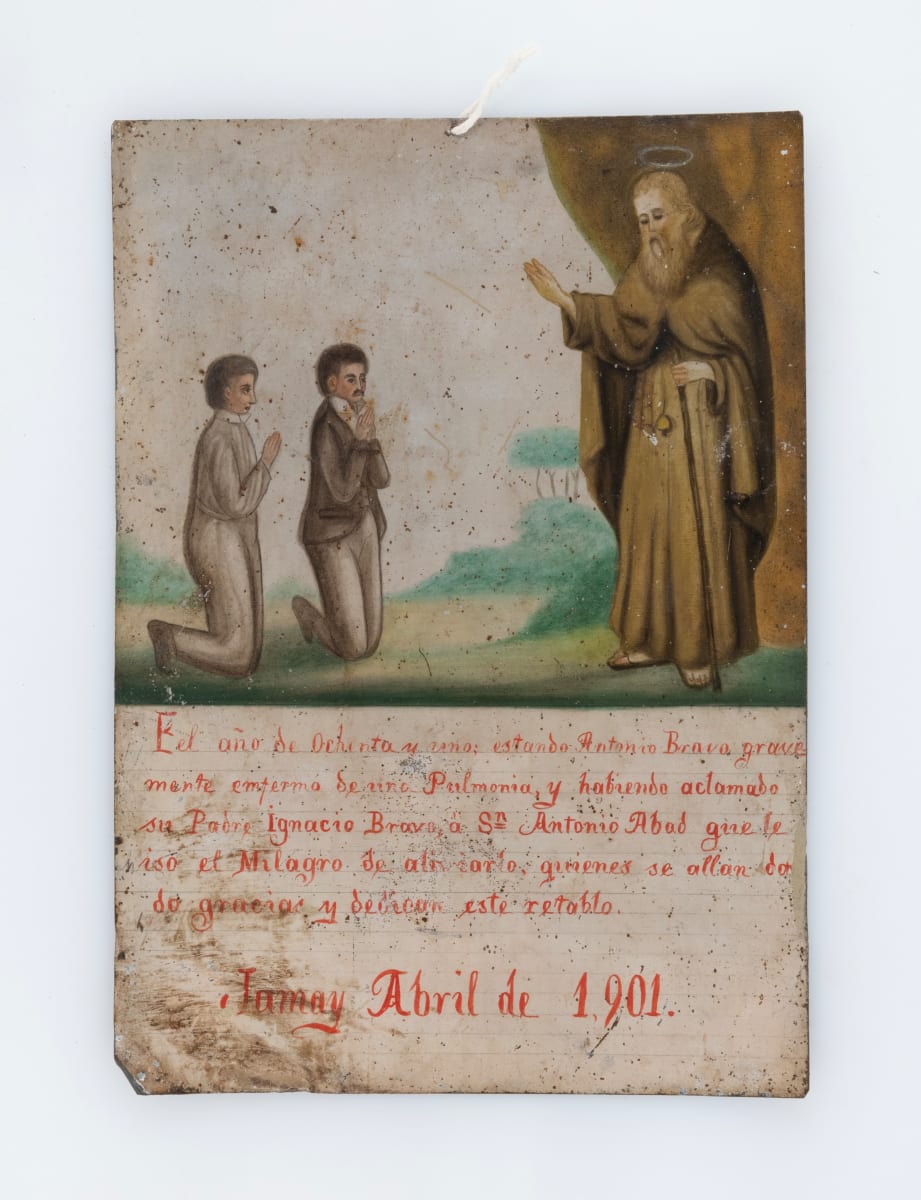 El año de Ochenta y uno; estando Antonio Bravo grave
mente enfermo de una Pulmonia, y habiendo aclamado
su Padre Ignacio Bravo, á Sn Antonio Abad que le
iso el Milagro de aliviarlo, quienes se allan da
do gracias y dedican este retablo.
Jamay Abril de 1,901.